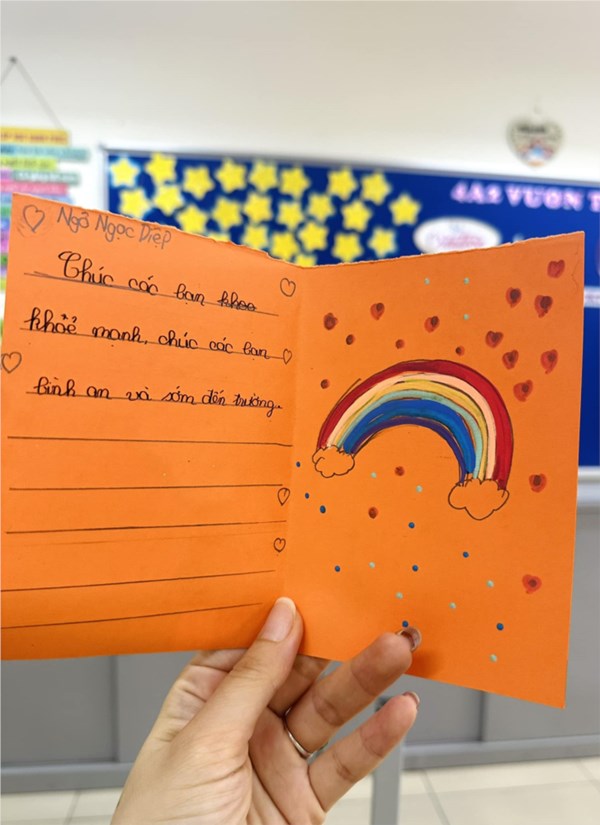 Ngô Ngọc Diệp
Chúc các bạn khoo
khoẻ mạnh, chúc các bạn
bình an và sớm đến trường.
4A2 VƯƠN T